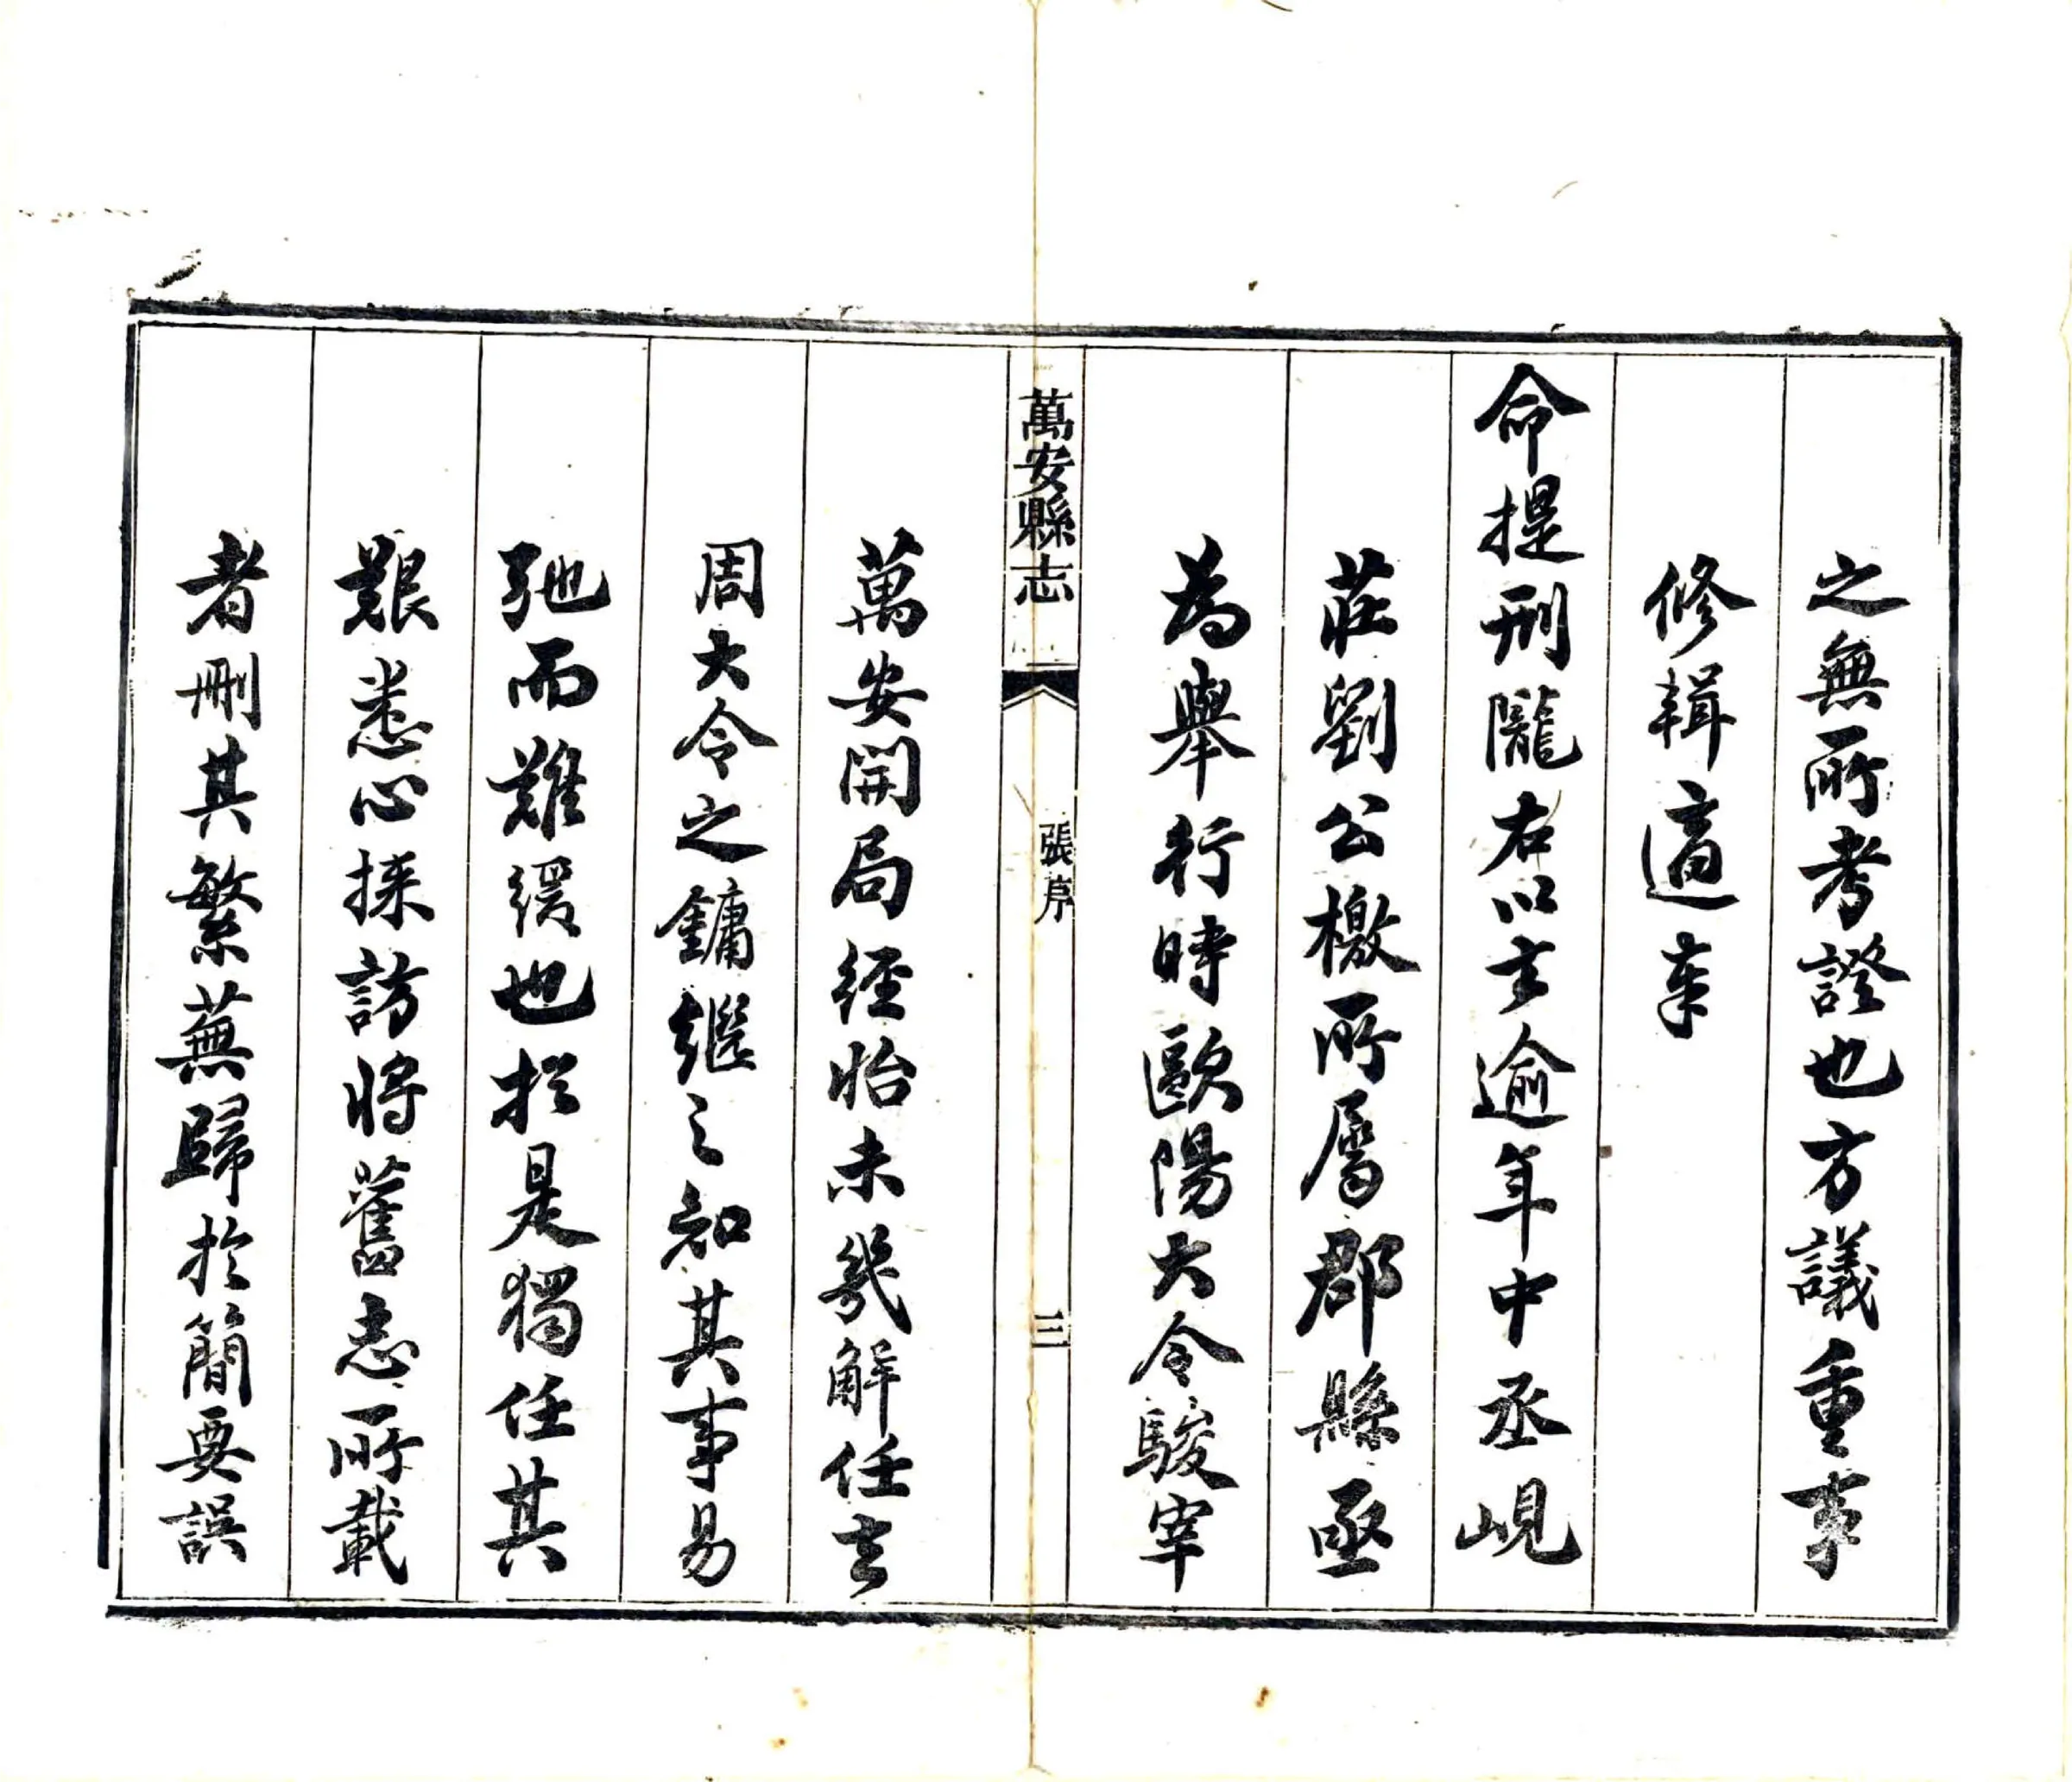 之無所考證也方議重事
修輯適奉
命提刑隴右以去逾年中丞峴
莊劉公檄所屬郡縣亟
為舉行時歐陽大令駿宰
萬安縣志
張序
三
萬安開局經始未幾解任去
周大令之鏞繼之知其事易
弛而難緩也於是獨任其
艱悉心採訪將舊志所載
者刪其繁蕪歸於簡要誤